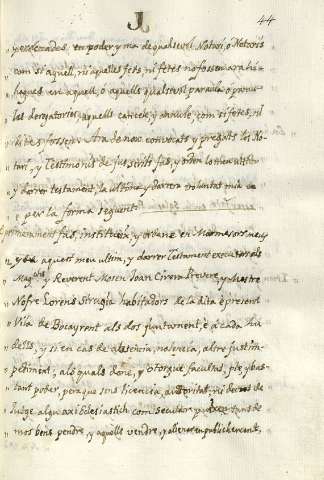 J 44
y executades, en poder y ma de qualsevol Notari, o Notaris
com si aquell, ni aquelles fets, ni fetes no fossen ara hi-
hagues en aquell, o aquells qualsevol paraula o parau-
les derogatories, aquells cancele, y annule, com si fetes, ni
Ara de nou convocats y pregats los No-
tari, y Testimonis de jus scrits fas, y orden lo meu ulti
y darrer testament, la ultima y darrera voluntat mia
e per la forma seguent
Primerament fas, institueix, y ordene en Marmesors meus
y de aquest meu ultim, y darrer Testament executors als
Mag.chs y Reverent Mosen Joan Civera Prevere, y Mestre
Nofre Lorens Sirugia habitadors de la dita è present
Vila de Bocayrent als dos juntament, è a cada hu
de lls, y si en cas de absencia, malaltia, altre just im-
pediment, als quals done, y otorgue facultat, ple y bas-
tant poder, pera que sens licencia, autoritat, ni decret de
Judge algu axi Eclesiastich com secular, y tans de
mos bens pendre, y aquells vendre,